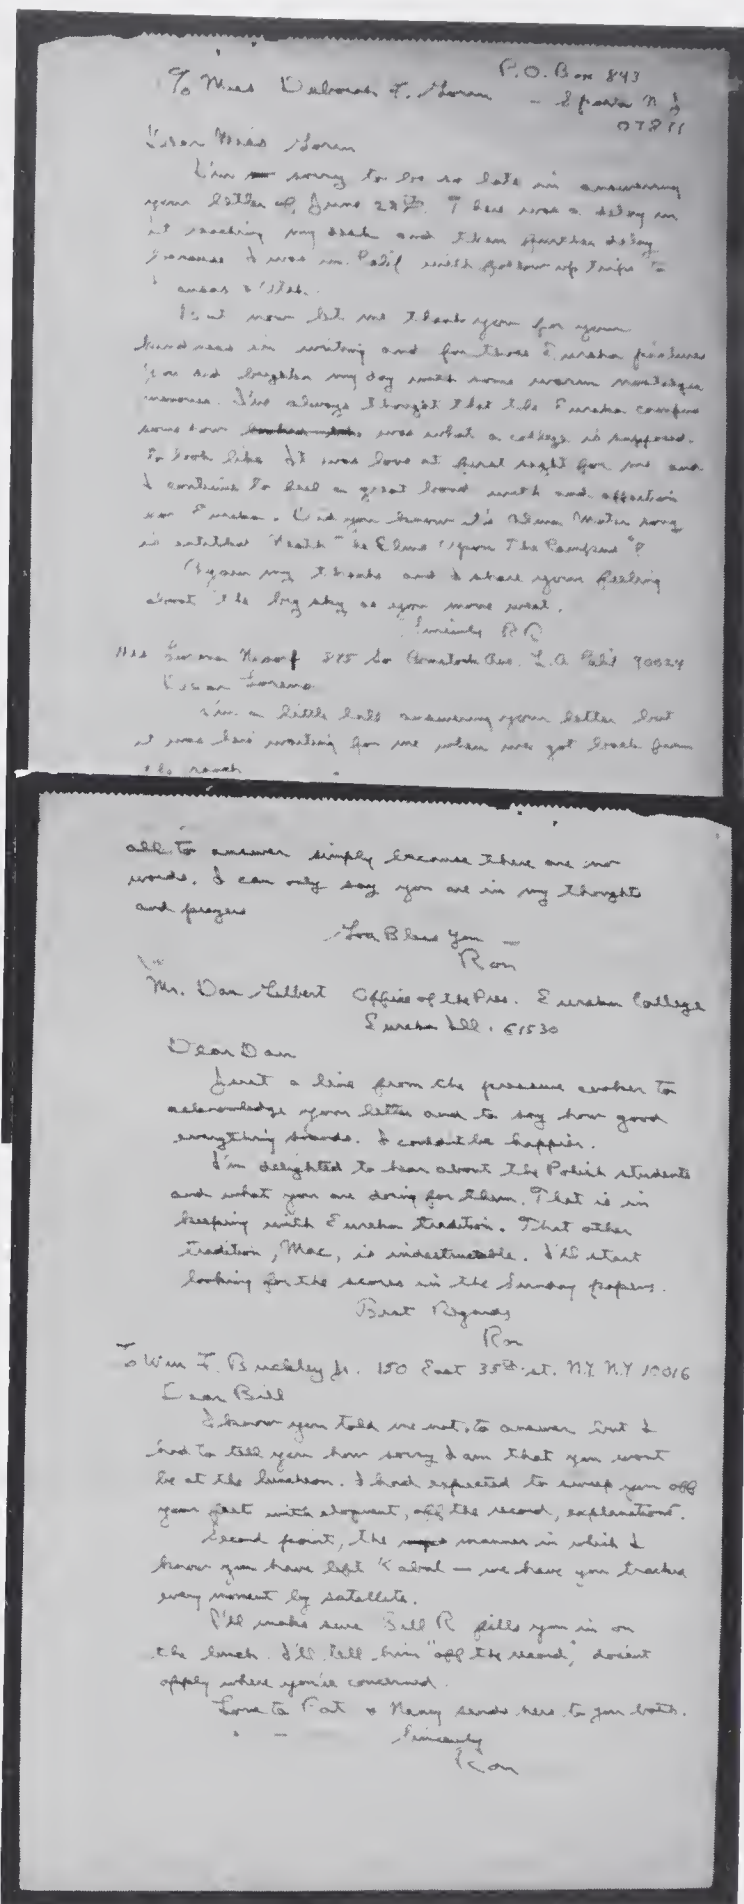 P.O. Box 843
% Miss Deborah F. Goren - Sparta N.J.
07871
Dear Miss Goren
I'm sorry to be so late in answering
your letter of June 28th. There was a delay in
it reaching my desk and then further delay
because I was in Calif with follow up trips to
&
But now let me thank you for your
kindness in writing and for those Eureka pictures
You did brighten my day with some warm nostalgic
memories. I've always thought that the Eureka campus
some how was what a college is supposed
to look like. It was love at first sight for me and
I continue to feel a great bond with and affection
for Eureka. Did you know it's Alma Mater song
is entitled "Neath the Elms Upon The Campus"?
Again my thanks and I share your feeling
about the big sky as you move west.
Sincerely RR
Mrs 875 So Comstock Ave. L.A. Calif 90024
Dear Lorena
I'm a little late answering your letter but
it was here waiting for me when we got back from
the ranch
all to answer simply because there are no
words. I can only say you are in my thoughts
and prayers
God Bless You –
Ron
Mr. Dan Gilbert Office of the Pres. Eureka College
Eureka Ill. 61530
Dear Dan
Just a line from the pressure cooker to
acknowledge your letter and to say how good
everything sounds. I couldn't be happier.
I'm delighted to hear about the Polish students
and what you are doing for them. That is in
keeping with Eureka tradition. That other
tradition, Mac, is indestructable. I'll start
looking for the scores in the Sunday papers.
Best Regards
Ron
To Wm F. Buckley Jr. 150 East 35th st. N.Y. N.Y 10016
Dear Bill
I know you told me not to answer but I
had to tell you how sorry I am that you wont
be at the luncheon. I had expected to sweep you off
your feet with eloquent, off the record, explanations.
Second point, the manner in which I
know you have left Kabul — we have you tracked
every moment by satellite.
I'll make sure Bill R fills you in on
the lunch. I'll tell him "off the record", doesn't
apply where you're concerned.
Love to Pat & Nancy sends hers to you both.
Sincerely
Ron